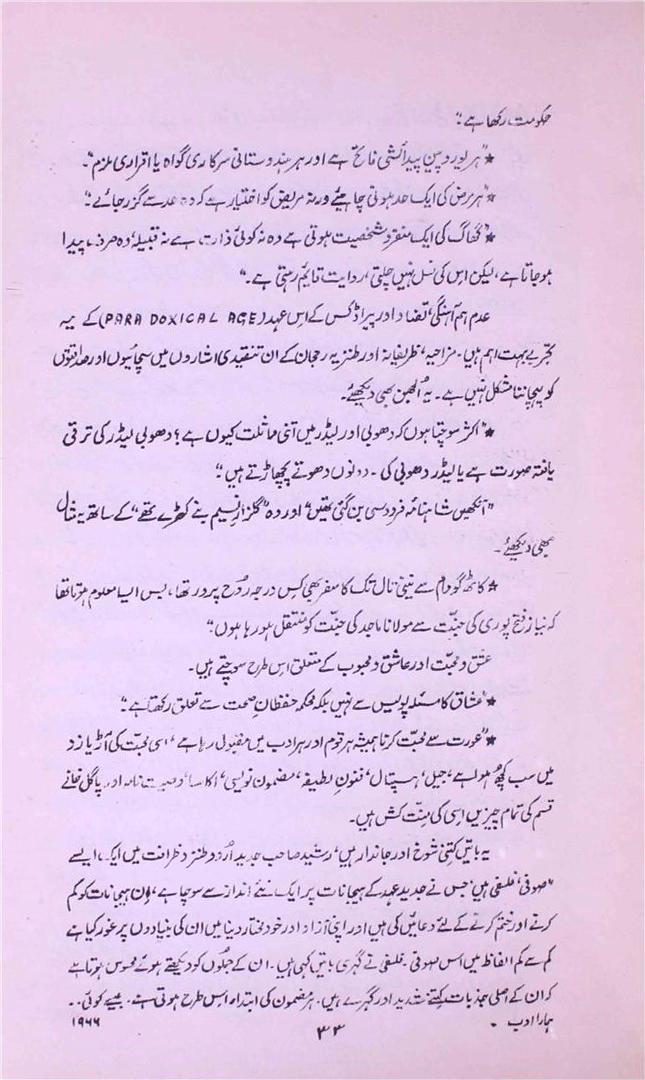 حکومت رکھا ہے"۔
★ "ہر یوروپین پیدائشی فاتح ہے اور ہر ہندوستانی سرکاری گواہ یا اقراری ملزم"۔
★ "ہر مرض کی ایک حد ہونی چاہیئے ورنہ مریض کو اختیار ہے کہ وہ حد سے گزر جائے"۔
★ "گھاگ کی ایک منفرد شخصیت ہوتی ہے وہ نہ کوئی ذات ہے نہ قبیلہ، وہ صرف پیدا
ہو جاتا ہے، لیکن اس کی نسل نہیں چلتی، روایت قایم رہتی ہے۔"
عدم ہم آہنگی، تضاد اور پیراڈکس کے اس عہد (PARADOXICAL AGE) کے یہ
تجربے بہت اہم ہیں۔ مزاحیہ، ظریفانہ اور طنزیہ رجحان کے ان تنقیدی اشاروں میں سچائیوں اور صداقتوں
کو پہچاننا مشکل نہیں ہے۔ یہ اُلجھن بھی دیکھئے۔
★ "اکثر سوچتا ہوں کہ دھوبی اور لیڈر میں اتنی مماثلت کیوں ہے؟ دھوبی لیڈر کی ترقی
یافتہ صورت ہے یا لیڈر دھوبی کی۔ دونوں دھوتے پچھاڑتے ہیں"۔
"آنکھیں شاہنامہ فردوسی بن گئی تھیں" اور وہ "گلزارِ نسیم بنے کھڑے تھے" کے ساتھ یہ خیال
بھی دیکھئے۔
★ کاٹھ گودام سے نینی تال تک کا سفر بھی کس درجہ رُوح پرور تھا، بس ایسا معلوم ہوتا تھا
کہ نیاز فتح پوری کی جنّت سے مولانا ماجد کی جنّت کو منتقل ہو رہا ہوں"
عشق و محبّت اور عاشق و محبوب کے متعلق اس طرح سوچتے ہیں۔
★ "عشاق کا مسئلہ پولیس سے نہیں بلکہ محکمہ حفظانِ صحت سے تعلق رکھتا ہے"۔
★ "عورت سے محبّت کرنا ہمیشہ ہر قوم اور ہر ادب میں مقبول رہا ہے، اسی محبّت کی آڑ یا زد
میں سب کچھ ہوا ہے، جیل، ہسپتال، فنون لطیفہ، مضمون نویسی، وصیت نامہ اور پاگل خانے
قسم کی تمام چیزیں اسی کی منّت کش ہیں۔
یہ باتیں کتنی شوخ اور جاندار ہیں، رشید صاحب جدید اُردو طنز و ظرافت میں ایک ایسے
"صوفی" فلسفی ہیں جس نے جدید عہد کے ہیجانات پر ایک نئے انداز سے سوچا ہے، اِن ہیجانات کو کم
کرنے اور ختم کرنے کے لئے دعائیں کی ہیں اور اپنی آزاد اور خود مختار دنیا میں ان کی بنیادوں پر غور کیا ہے
کم سے کم الفاظ میں اس صوفی فلسفی نے گہری باتیں کہی ہیں۔ ان کے جملوں کو دیکھتے ہوئے محسوس ہوتا ہے
کہ ان کے اصلی جذبات کتنے شدید اور گہرے ہیں۔ ہر مضمون کی ابتداء اس طرح ہوتی ہے۔ جیسے کوئی۔۔
ہمارا ادب ۳۳ ۱۹۶۶